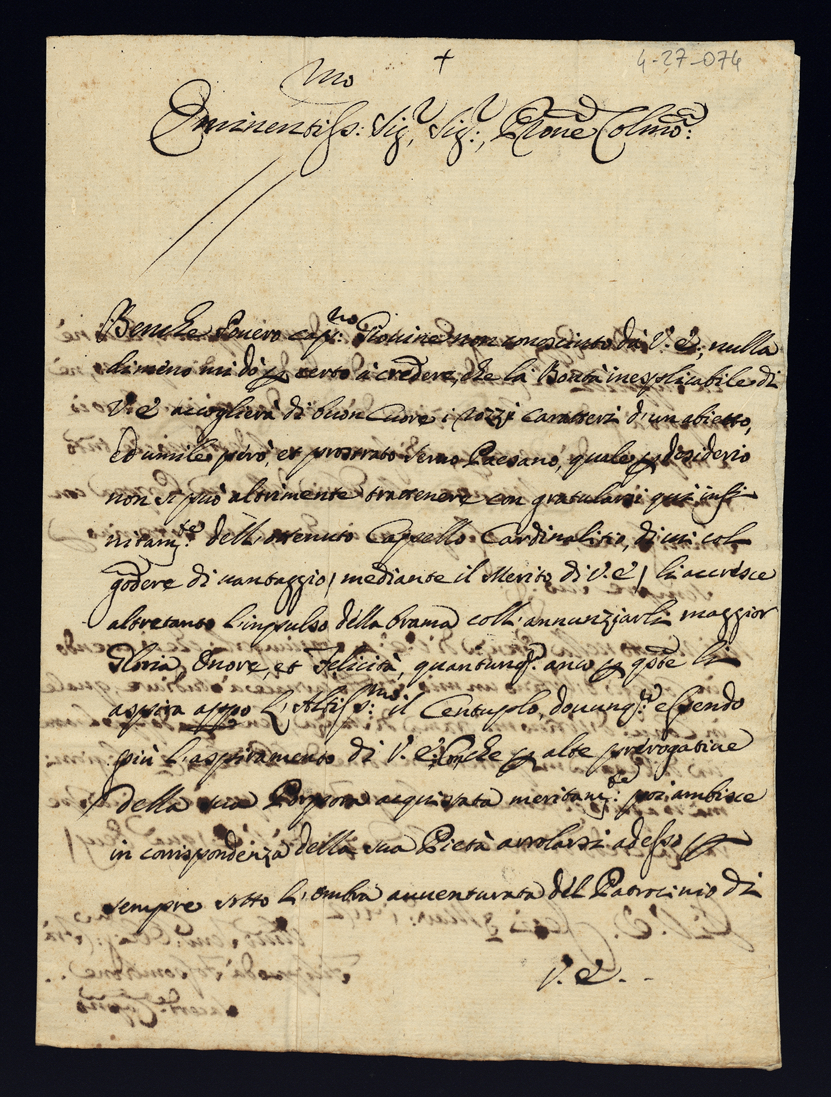 4-27-074
+
Eminentiss:mo Sig.r Sig.r, P̅rone Colmo:
Benche Povero capno: Giovine non conosciuto da V: E:, nulla
dimeno mi dò p certo à credere, che la Bontà inesplicabile di
V: E: accoglierà di buon Cuore i rozzi caratteri d'un abietto,
ed umile però, et prostrato servo Paesano, quale p desiderio
non si può altrimente trattenere con gratularsi qui infi-
nitamte: dell'ottenuto Capello Cardinalitio, di cui col
godere di vantaggio / mediante il Merito di V: E: / li accresce
altretanto l'impulso della brama coll'annunziarli maggior
Gloria, Onore, et Felicità, quantunq: anco p
aspira appo l'Altissmo: il Centuplo, dovunq: essendo
più l'aspiramento di V: E: che p alte prerogative
della sua Porpora acquistata meritamte: poi ambisce
in corrispondenza della sua Pietà arrolarsi adesso p
sempre sotto l'ombra avventurata del Patrocinio di
V: E: -